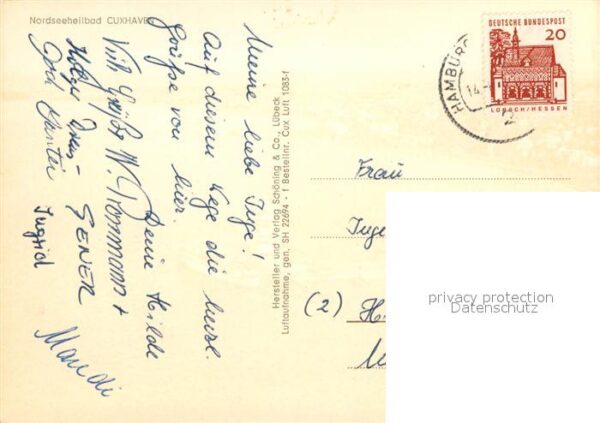 Nordseeheilbad CUXHAVEN
Meine liebe Inge!
Auf diesem Wege die herzl.
Grüße von hier.
Deine Hilde
Viele Grüße W.
Holger
SENER
Günter
Ingrid
Mandi
Hersteller und Verlag Schöning & Co., Lübeck
Luftaufnahme, gen. SH 22694 - 1 Bestellnr. Cux Luft 1083-f
HAMBURG
14
2
DEUTSCHE BUNDESPOST
20
LORSCH/HESSEN
Frau
Inge
(2) H
privacy protection
Datenschutz